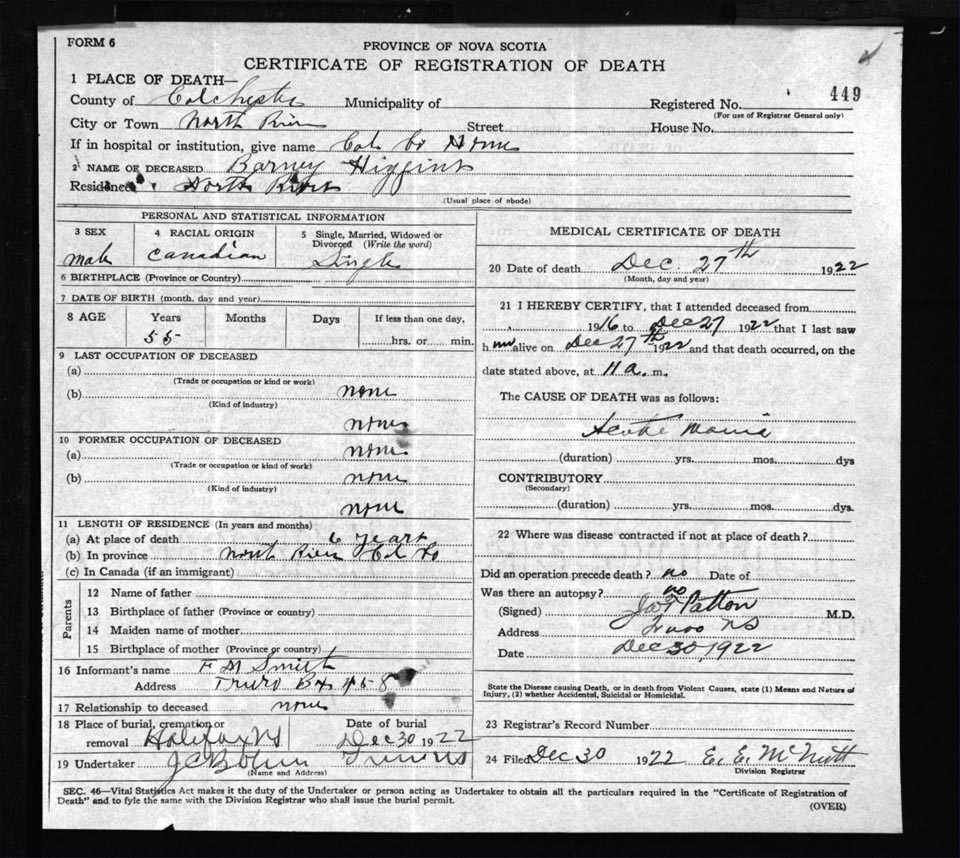 FORM 6
PROVINCE OF NOVA SCOTIA
CERTIFICATE OF REGISTRATION OF DEATH
449
1 PLACE OF DEATH—
County of Colchester Municipality of Registered No.
(For use of Registrar General only)
City or Town North River Street House No.
If in hospital or institution, give name Col Co Home
2 NAME OF DECEASED Barney Higgins
Residence North River
(Usual place of abode)
PERSONAL AND STATISTICAL INFORMATION
3 SEX 4 RACIAL ORIGIN 5 Single, Married, Widowed or Divorced (Write the word)
male Canadian Single
6 BIRTHPLACE (Province or Country)
7 DATE OF BIRTH (month, day and year)
8 AGE Years Months Days If less than one day,
55 hrs. or min.
9 LAST OCCUPATION OF DECEASED
(a)
(Trade or occupation or kind of work)
(b) none
(Kind of industry)
none
10 FORMER OCCUPATION OF DECEASED
(a) none
(Trade or occupation or kind of work)
(b) none
(Kind of industry)
none
11 LENGTH OF RESIDENCE (In years and months)
(a) At place of death 6 years
(b) In province North River Col Co
(c) In Canada (if an immigrant)
Parents
12 Name of father
13 Birthplace of father (Province or country)
14 Maiden name of mother
15 Birthplace of mother (Province or country)
16 Informant's name F M Smith
Address Truro Bx 458
17 Relationship to deceased none
18 Place of burial, cremation or removal Halifax NS
Date of burial Dec 30 1922
19 Undertaker J C
(Name and Address)
MEDICAL CERTIFICATE OF DEATH
20 Date of death Dec 27th 1922
(Month, day and year)
21 I HEREBY CERTIFY, that I attended deceased from
1916 to Dec 27 1922 that I last saw
him alive on Dec 27th 1922 and that death occurred, on the
date stated above, at 11 a. m.
The CAUSE OF DEATH was as follows:
Acute Mania
(duration) yrs. mos. dys
CONTRIBUTORY
(Secondary)
(duration) yrs. mos. dys.
22 Where was disease contracted if not at place of death?
Did an operation precede death? no Date of
Was there an autopsy? no
(Signed) Patton M.D.
Address Truro NS
Date Dec 30, 1922
State the Disease causing Death, or in death from Violent Causes, state (1) Means and Nature of
Injury, (2) whether Accidental, Suicidal or Homicidal.
23 Registrar's Record Number
24 Filed Dec 30 1922 E. E. McNutt
Division Registrar
SEC. 46—Vital Statistics Act makes it the duty of the Undertaker or person acting as Undertaker to obtain all the particulars required in the "Certificate of Registration of
Death" and to fyle the same with the Division Registrar who shall issue the burial permit.
(OVER)